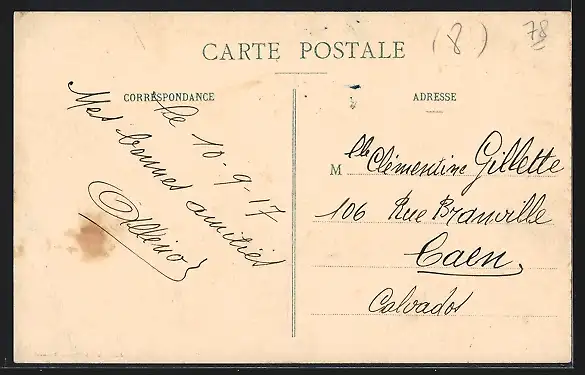 CARTE POSTALE
(8)
78
CORRESPONDANCE
Le 10-9-17
Mes bonnes amitiés
ADRESSE
Mlle Clémentine Gillette
106 Rue Branville
Caen,
Calvados